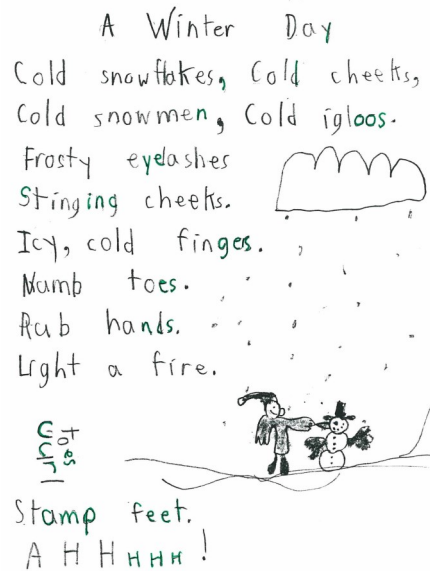 A Winter Day
Cold snowflakes, Cold cheeks,
Cold snowmen, Cold igloos.
Frosty eyelashes
Stinging cheeks.
Icy, cold fingers.
Numb toes.
Rub hands.
Light a fire.
Curl
toes
Stamp feet.
A H H H H H !